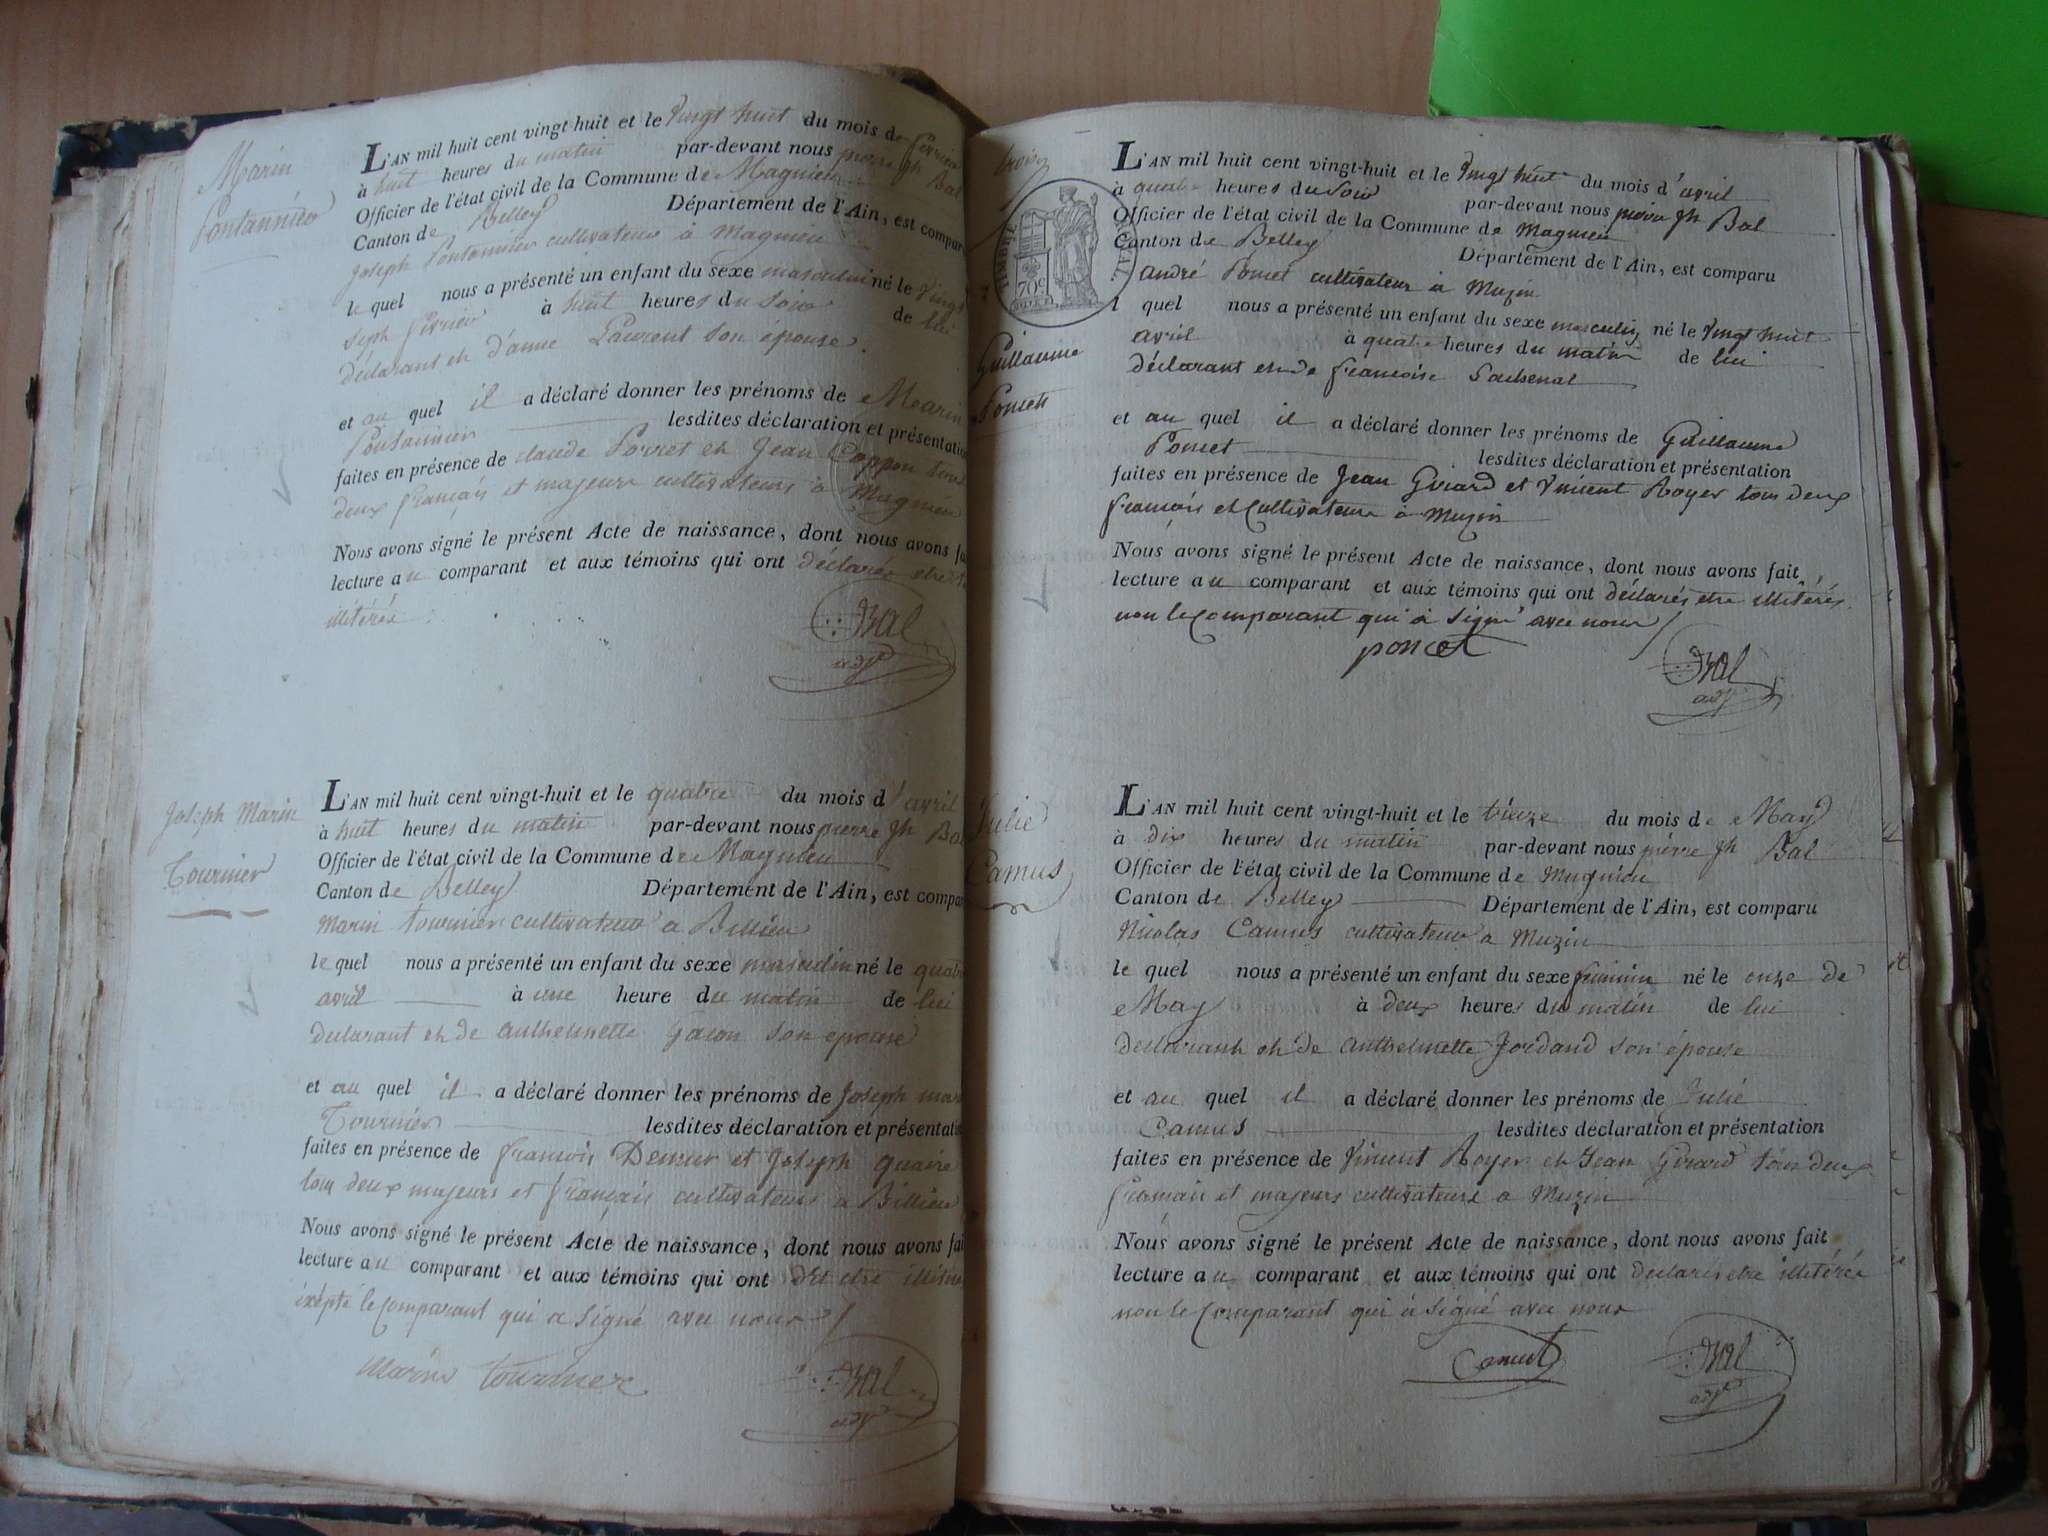 Marin
Pontannier
L'AN mil huit cent vingt-huit et le vingt huit du mois de fevrier
à huit heures du matin par-devant nous pierre Jh Bal
Officier de l'état civil de la Commune de Magnieu
Canton de Belley Département de l'Ain, est compar
Joseph Pontannier cultivateur à Magnieu
le quel nous a présenté un enfant du sexe masculin né le vingt
sept fevrier à huit heures du soir de lui
déclarant et d'anne Laurent son épouse
et au quel il a déclaré donner les prénoms de Marin
Pontannier lesdites déclaration et présentation
faites en présence de claude Porret et Jean Coppon tous
deux français et majeurs cultivateurs à Magnieu
Nous avons signé le présent Acte de naissance, dont nous avons fa
lecture au comparant et aux témoins qui ont déclarés etre
illitérés
Bal
adjt
Joseph Marin
Tournier
L'AN mil huit cent vingt-huit et le quatre du mois d'avril
à huit heures du matin par-devant nous pierre Jh Bal
Officier de l'état civil de la Commune de Magnieu
Canton de Belley Département de l'Ain, est compar
Marin tournier cultivateur a Billieu
le quel nous a présenté un enfant du sexe masculin né le quatre
avril à une heure du matin de lui
declarant et de anthelmette Gacon son epouse
et au quel il a déclaré donner les prénoms de Joseph mar
Tournier lesdites déclaration et présentatio
faites en présence de francois Demeur et Joseph quaire
tous deux majeurs et français cultivateurs a Billieu
Nous avons signé le présent Acte de naissance, dont nous avons fai
lecture au comparant et aux témoins qui ont dit etre
exépté le comparant qui a signé avec nous
Marin tournier
Bal
adjt
trois
TIMBRE
70c
L'AN mil huit cent vingt-huit et le vingt huit du mois d'avril
à quatre heures du soir par-devant nous pierre Jh Bal
Officier de l'état civil de la Commune de Magnieu
Canton de Belley Département de l'Ain, est comparu
andré Poncet cultivateur à Muzin
l quel nous a présenté un enfant du sexe masculin né le vingt huit
avril à quatre heures du matin de lui
déclarant et de francoise
Guillaume
Poncet
et au quel il a déclaré donner les prénoms de Guillaume
Poncet lesdites déclaration et présentation
faites en présence de Jean Girard et Vincent Royer tous deux
français et cultivateurs à Muzin
Nous avons signé le présent Acte de naissance, dont nous avons fait
lecture au comparant et aux témoins qui ont déclarés etre illitérés
non le comparant qui à signé avec nous
poncet
Bal
adjt
Julie
Camus
L'AN mil huit cent vingt-huit et le treize du mois de May
à dix heures du matin par-devant nous pierre Jh Bal
Officier de l'état civil de la Commune de Magnieu
Canton de Belley Département de l'Ain, est comparu
Nicolas Camus cultivateur a Muzin
le quel nous a présenté un enfant du sexe feminin né le onze de
May à deux heures du matin de lui
declarant et de anthelmette Jordand son épouse
et au quel il a déclaré donner les prénoms de Julie
Camus lesdites déclaration et présentation
faites en présence de Vincent Royer et Jean Girard tous deux
français et majeurs cultivateurs a Muzin
Nous avons signé le présent Acte de naissance, dont nous avons fait
lecture au comparant et aux témoins qui ont declarés etre illitérés
non le Comparant qui à signé avec nous
Camus
Bal
adjt